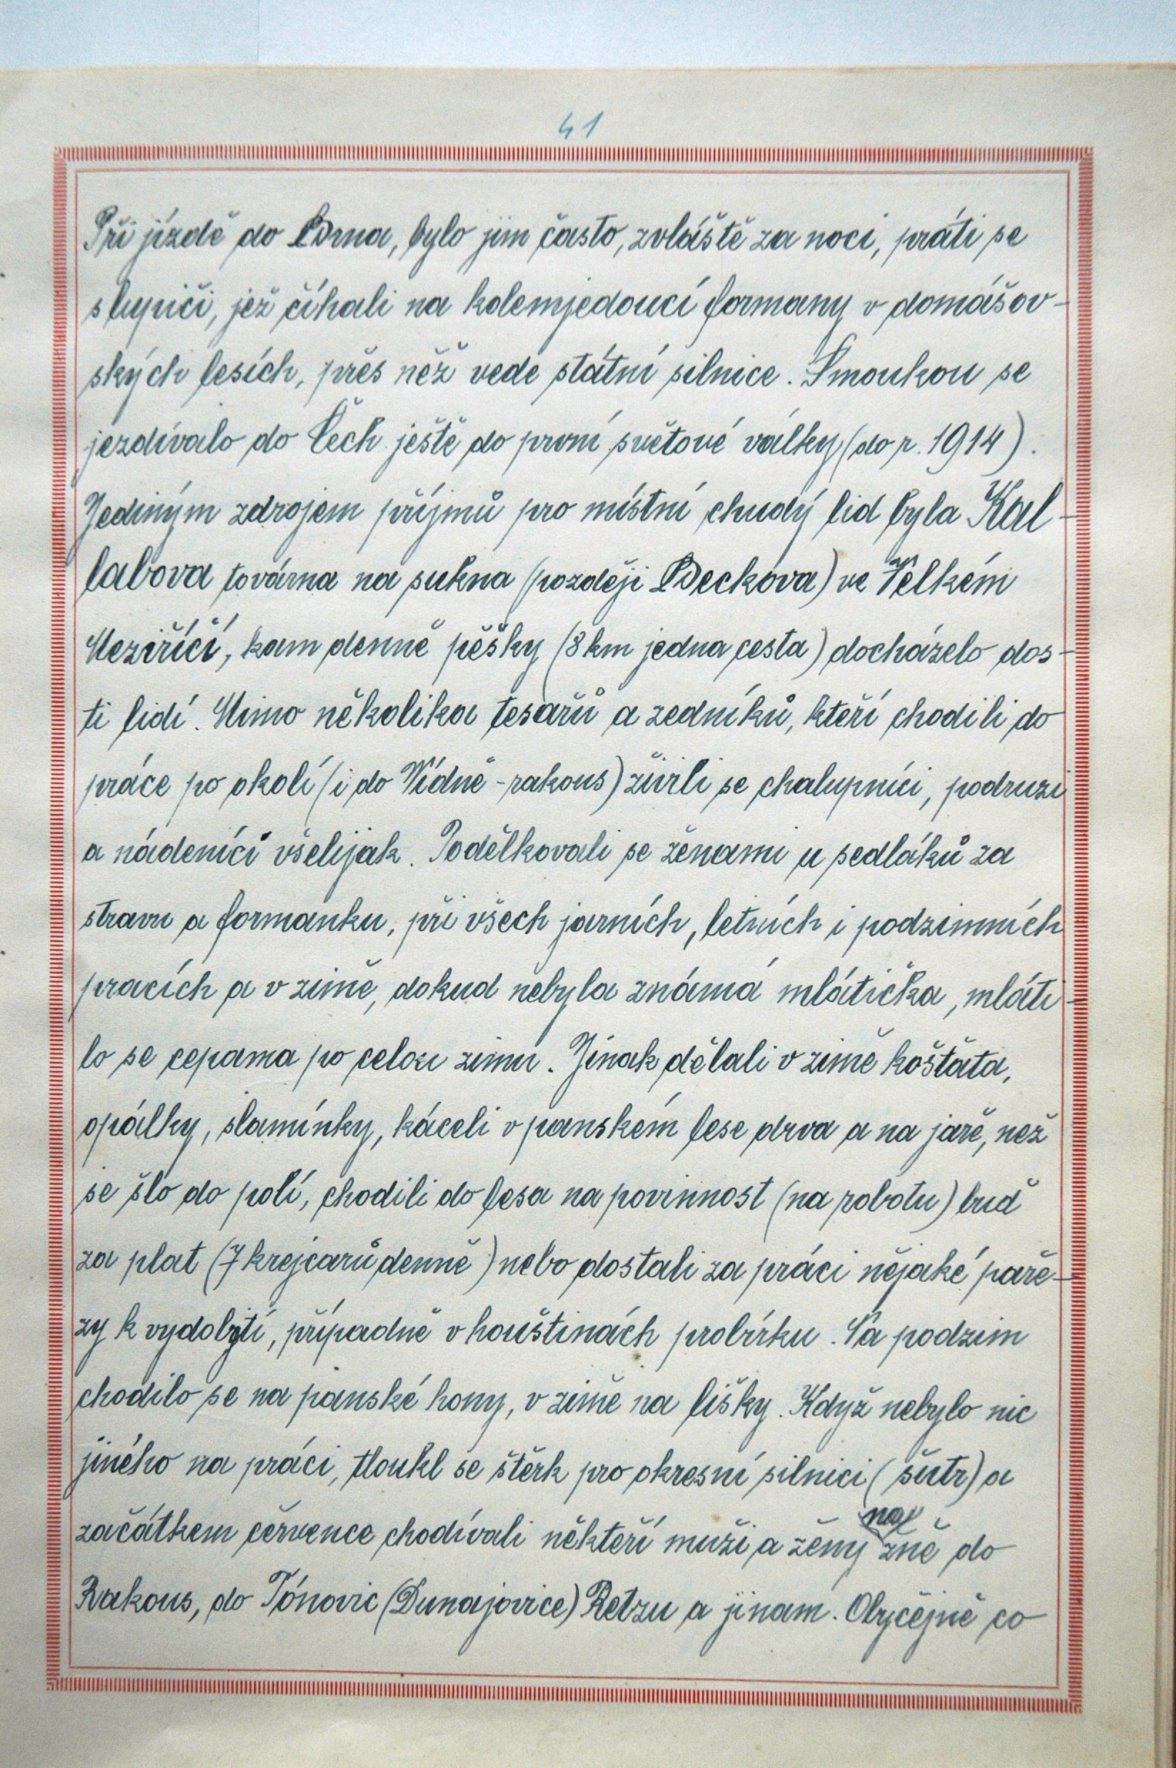 41
Při jízdě do Brna, bylo jim často, zvláště za noci, práti se
s lupiči, jež číhali na kolemjedoucí formany v domášov-
ských lesích, přes něž vede státní silnice. S moukou se
jezdívalo do Čech ještě do první světové války (do r. 1914).
Jediným zdrojem příjmů pro místní chudý lid byla Kal-
labova továrna na sukna (později Beckova) ve Velkém
Meziříčí, kam denně pěšky (8 km jedna cesta) docházelo dos-
ti lidí. Mimo několika tesařů a zedníků, kteří chodili do
práce po okolí (i do Vídně - rakous) živili se chalupníci, podruzi
a nádeníci všelijak. Podělkovali se ženami u sedláků za
stravu a formanku, při všech jarních, letních i podzimních
pracích a v zimě, dokud nebyla známá mlátička, mláti-
lo se cepama po celou zimu. Jinak dělali v zimě košťata,
opálky, slamínky, káceli v panském lese drva a na jaře, než
se šlo do polí, chodili do lesa na povinnost (na robotu) buď
za plat (7 krejcarů denně) nebo dostali za práci nějaké paře-
zy k vydobytí, případně v houštinách probírku. Na podzim
chodilo se na panské hony, v zimě na lišky. Když nebylo nic
jiného na práci, tloukl se štěrk pro okresní silnici (šutr) a
začátkem července chodívali někteří muži a ženy na žně do
Rakous, do Tónovic (Dunajovice) Retzu a jinam. Obyčejně co